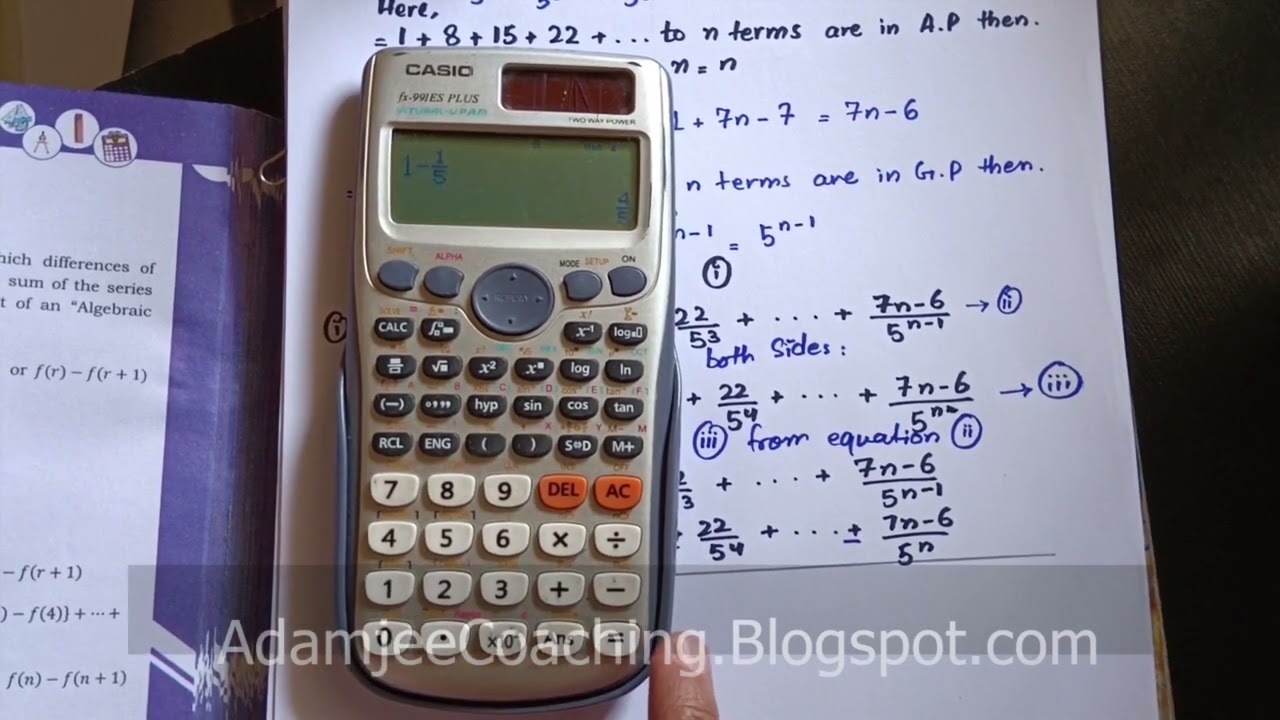 Here,
= 1 + 8 + 15 + 22 + ... to n terms are in A.P then.
n = n
1 + 7n - 7 = 7n - 6
n terms are in G.P then.
n-1 = 5^{n-1}
(i)
22/5^3 + .... + 7n-6/5^{n-1} → (ii)
both sides:
+ 22/5^4 + ... + 7n-6/5^n → (iii)
(iii) from equation (ii)
+ .... + 7n-6/5^{n-1}
22/5^4 + ... + 7n-6/5^n
hich differences of
sum of the series
t of an "Algebraic
or f(r) - f(r + 1)
- f(r + 1)
) - f(4)} + ... +
f(n) - f(n + 1)
CASIO
fx-991ES PLUS
NATURAL-V.P.A.M.
TWO WAY POWER
1-1/5
4/5
SHIFT ALPHA MODE SETUP ON
REPLAY
CALC x^{-1} log
x² log ln
(−) hyp sin cos tan
RCL ENG ( ) S⇔D M+
7 8 9 DEL AC
4 5 6 × ÷
1 2 3 + −
0 . ×10 Ans =
AdamjeeCoaching.Blogspot.com